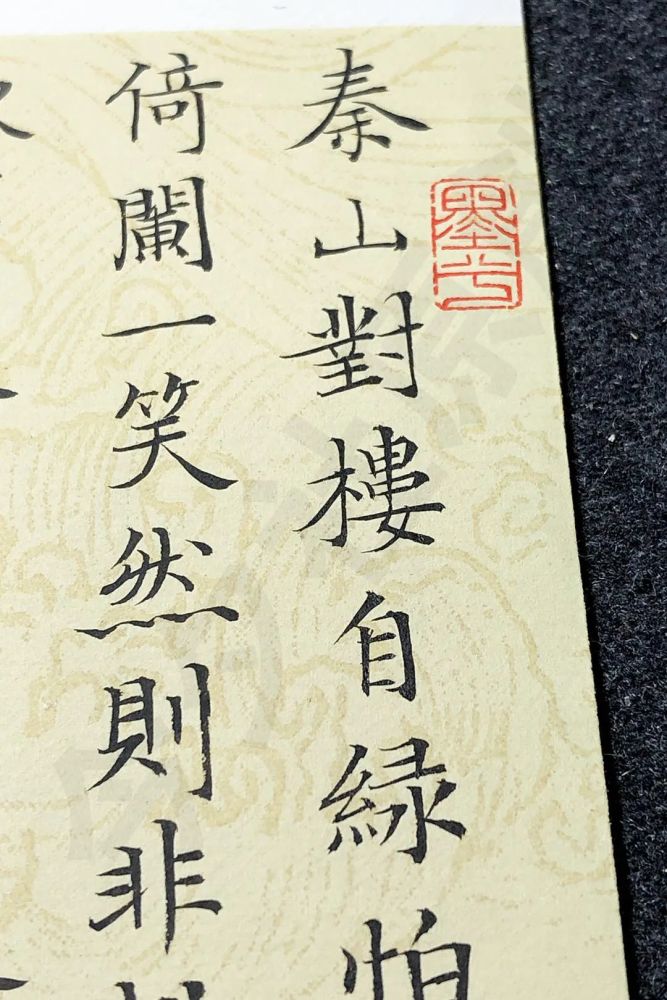 秦山對樓自緑怕
倚闌一笑然則非